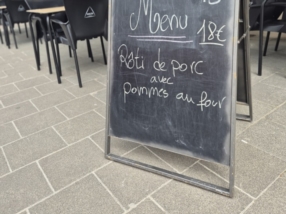 Menu
18€
Rôti de porc
avec
pommes au four